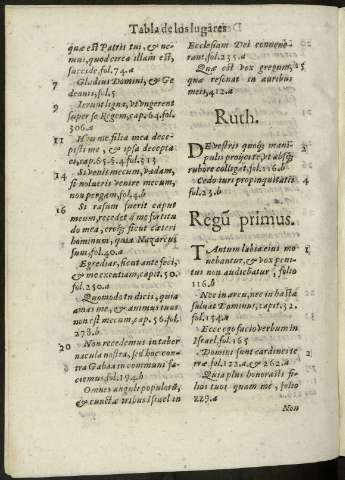 Tabla de los lugares
quæ est Patris tui, & ne-
mus, quod circa illam est,
succide, fol. 74. a
7 Gladius Domini, & Ge-
deonis, fol. 5
9 Ierunt ligna, vt vngerent
super se Regem, cap. 64. fol.
306. a
11 Heu me filia mea dece-
pisti me, & ipsa decepta
es, cap. 65. §. 4. fol. 313
14 Si venis mecum, vadam,
si nolueris venire mecum,
non pergam, fol. 4. b
16 Si rasum fuerit caput
meum, recedet a me fortitu
do mea, eroq; sicut cæteri
hominum, quia Nazareus
sum, fol. 40. a
Egrediar, sicut ante feci,
& me excutiam, capit. 50.
fol. 250. a
Quomodo tu dicis, quia
amas me, & animus tuus
non est mecum, cap. 56. fol.
278. b
20 Non recedemus in taber
nacula nostra, sed hoc con-
tra Gabaa in communi fa-
ciemus, fol. 194. b
Omnes anguli populorū,
& cunctæ tribus Israel in
Ecclesiam Dei convene-
rant, fol. 235. a
Quæ est vox gregum,
quæ resonat in auribus
meis, 412. a
Ruth.
DE vestris quoq; mani-
pulis proijcite, vt absq;
rubore colligat, fol. 116. b
Cedo iuri propinquitatis
fol. 23. b
Regū primus.
TAntum labia eius mo
nebantur, & vox peni-
tus non audiebatur, folio
116. b
Nec in arcu, nec in hasta
saluat Dominus, capit. 32.
fol. 154. a
Ecce ego facio verbum in
Israel, fol. 165
Domini sunt cardines ter
ræ, fol. 122. a, & 262. a
Quia plus honorasti fi-
lios tuos quam me, folio
229. a
Non